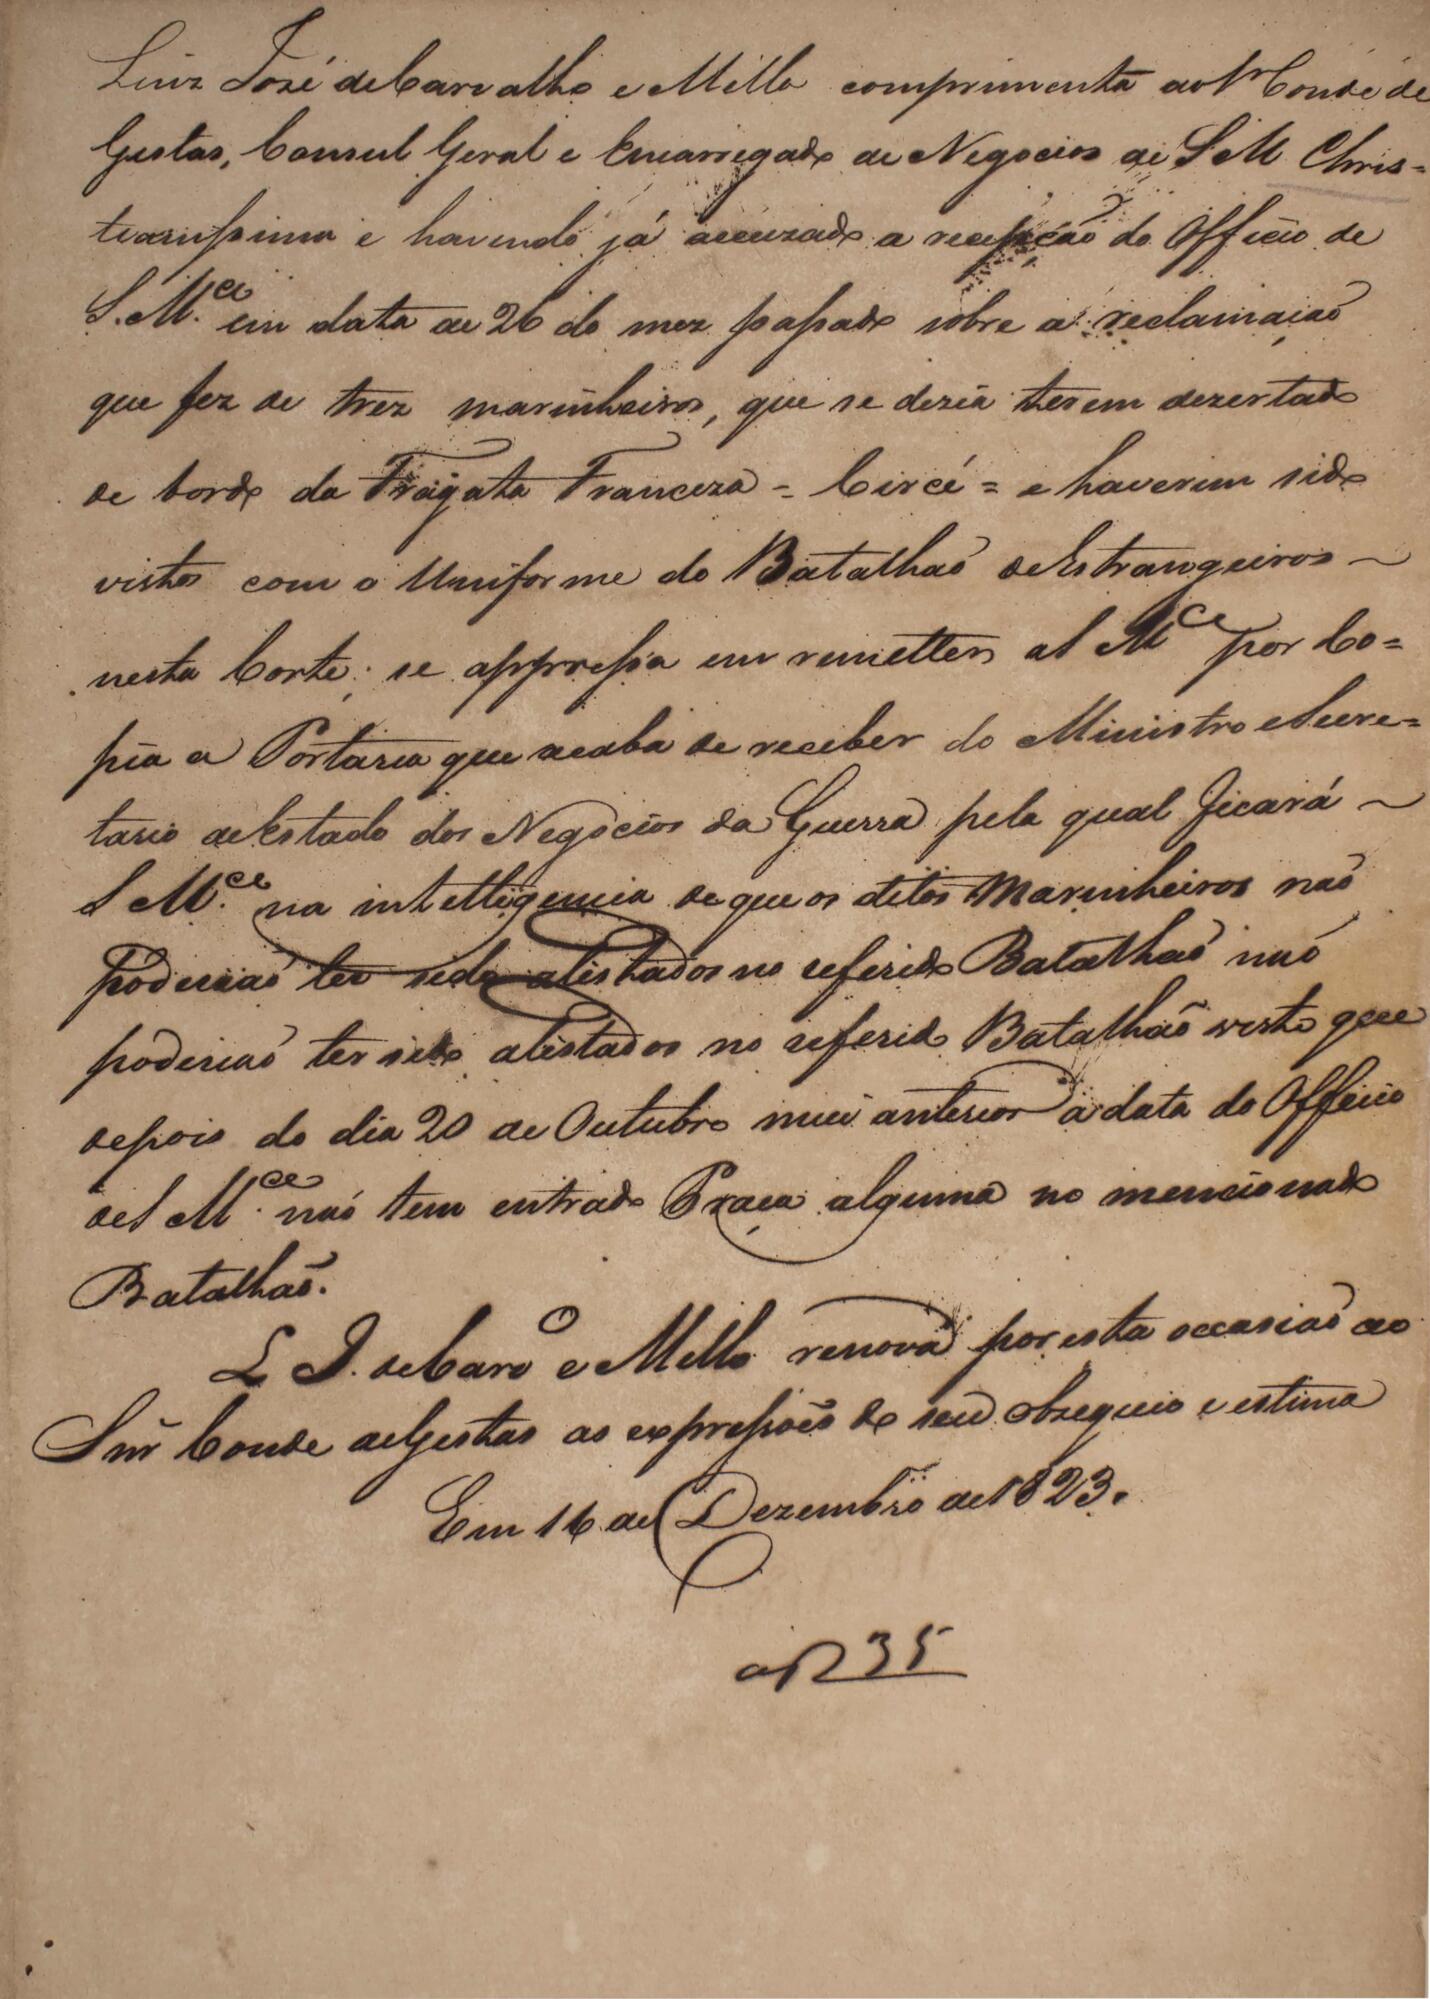 Luiz José de Carvalho e Mello comprimenta ao Sr Conde de
Gestas, Consul Geral e Encarregado de Negocios de S M Chris=
tianissima e havendo já accuzado a recepção do Officio de
S. M.ce em data de 26 do mez passado sobre a reclamação
que fez de trez marinheiros, que se dezia terem dezertado
de bordo da Fragata Franceza = Circé = e haverem sido
vistos com o Uniforme do Batalhão de Estrangeiros ~
nesta Corte; se appressa em remetter a S M.ce por Co=
pia a Portaria que acaba de receber do Ministro e Secre=
tario de Estado dos Negocios da Guerra pela qual ficará ~
S M.ce na intelligencia de que os ditos Marinheiros não
poderião ter sido alistados no referido Batalhão não
poderião ter sido alistados no referido Batalhão visto que
depois do dia 20 de Outubro mui anterior á data do Officio
de S M.ce não tem entrado Praça alguma no mencionado
Batalhão.
L J. de Caro e Mello renova por esta occasião ao
Snr Conde de Gestas as expressões do seu obzequio e estima
Em 16 de Dezembro de 1823.
35